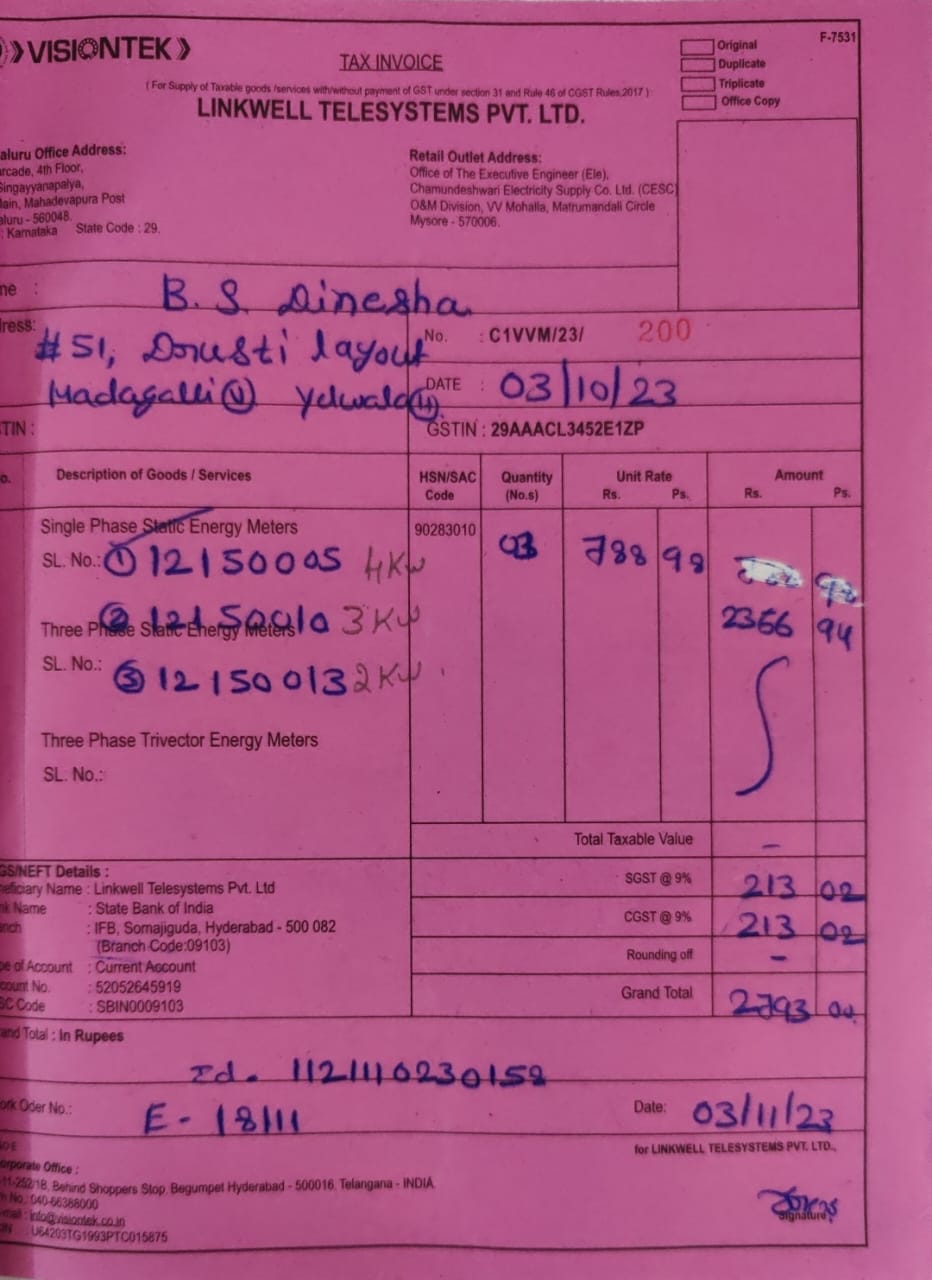 VISIONTEK
TAX INVOICE
Original
Duplicate
Triplicate
Office Copy
F-7531
( For Supply of Taxable goods /services with/without payment of GST under section 31 and Rule 46 of CGST Rules,2017 )
LINKWELL TELESYSTEMS PVT. LTD.
aluru Office Address:
rcade, 4th Floor,
Singayyanapalya,
Main, Mahadevapura Post
aluru - 560048.
: Karnataka State Code : 29.
Retail Outlet Address:
Office of The Executive Engineer (Ele),
Chamundeshwari Electricity Supply Co. Ltd. (CESC)
O&M Division, VV Mohalla, Matrumandali Circle
Mysore - 570006.
me : B. S. Dinesha
ress: #51, Drusti layout
Madagalli (V) Yelwala (H).
No. : C1VVM/23/ 200
DATE : 03/10/23
TIN :
GSTIN : 29AAACL3452E1ZP
o. Description of Goods / Services HSN/SAC Code Quantity (No.s) Unit Rate Rs. Ps. Amount Rs. Ps.
Single Phase Static Energy Meters 90283010 03 788 98
SL. No.: ① 12150005 4KW
② 12150010 3KW 2366 94
Three Phase Static Energy Meters
SL. No.: ③ 12150013 2KW
Three Phase Trivector Energy Meters
SL. No.:
Total Taxable Value -
SGST @ 9% 213 02
CGST @ 9% 213 02
Rounding off -
Grand Total 2793 00
GS/NEFT Details :
neficiary Name : Linkwell Telesystems Pvt. Ltd
nk Name : State Bank of India
nch : IFB, Somajiguda, Hyderabad - 500 082
(Branch Code:09103)
pe of Account : Current Account
count No. : 52052645919
SC Code : SBIN0009103
and Total : In Rupees
Id. 112111023015
ork Oder No.: E - 18/11
Date: 03/11/23
for LINKWELL TELESYSTEMS PVT. LTD.,
orporate Office :
-11-252/1B, Behind Shoppers Stop, Begumpet Hyderabad - 500016. Telangana - INDIA.
h No.: 040-66388000
mail : info@visiontek.co.in
IN : U64203TG1993PTC015875
Signature